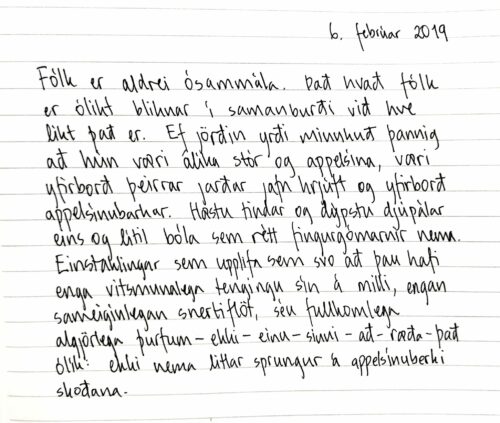 6. febrúar 2019
Fólk er aldrei ósammála. Það hvað fólk
er ólíkt bliknar í samanburði við hve
líkt það er. Ef jörðin yrði minnkuð þannig
að hún væri álíka stór og appelsína, væri
yfirborð þeirrar jarðar jafn hrjúft og yfirborð
appelsínubarkar. Hæstu tindar og dýpstu djúpálar
eins og lítil bóla sem rétt fingurgómarnir nema.
Einstaklingar sem upplifa sem svo að þau hafi
enga vitsmunalega tengingu sín á milli, engan
sameiginlegan snertiflöt, séu fullkomlega
algjörlega þurfum-ekki-einu-sinni-að-ræða-það
ólík: ekki nema litlar sprungur á appelsínuberki
skoðana.